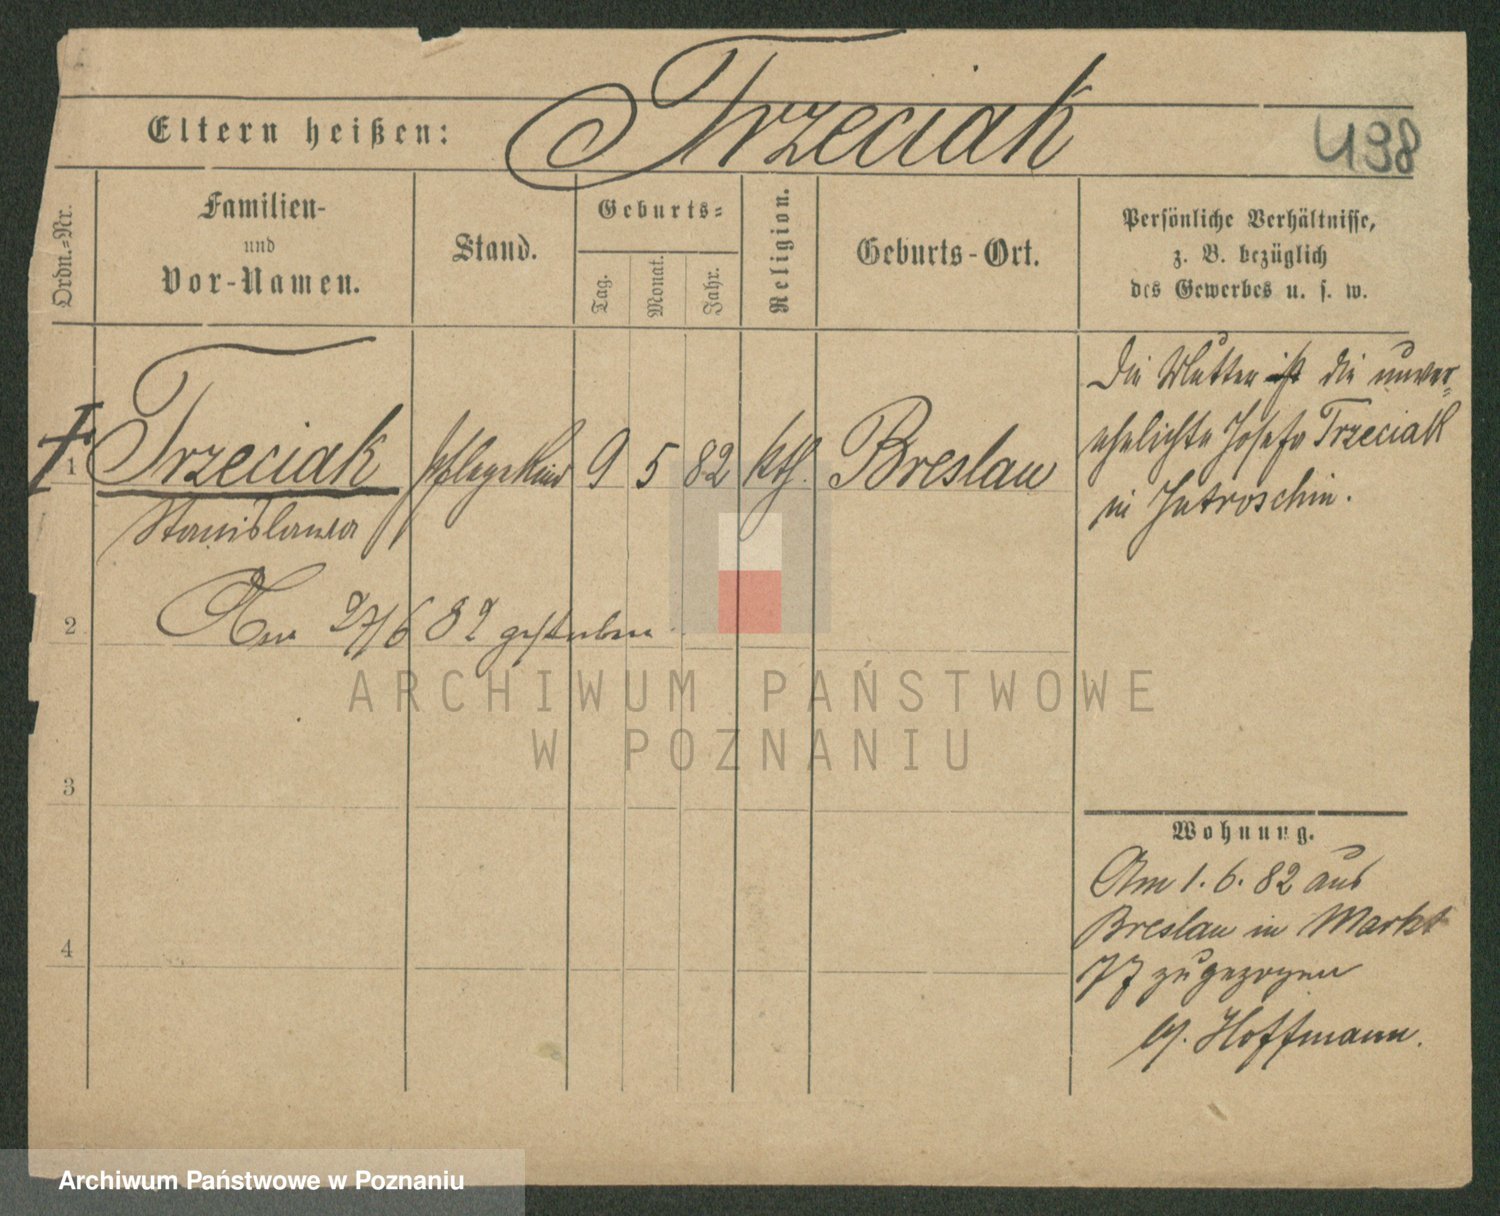 Trzeciak
Eltern heißen:
498
Ordn.-Nr.
Familien-
und
Vor-Namen.
Stand.
Geburts-
Tag.
Monat.
Jahr.
Religion.
Geburts-Ort.
Persönliche Verhältnisse,
z. B. bezüglich
des Gewerbes u. s. w.
1 Trzeciak Pflegekind 9 5 82 kth. Breslau
Stanislawa
Die Mutter ist die unver-
ehelichte Josefa Trzeciak
in Jutroschin.
2
Am 27/6 82 gestorben
ARCHIWUM PAŃSTWOWE
W POZNANIU
3
4
Wohnung.
Am 1. 6. 82 aus
Breslau in Markt
77 zugezogen
b/. Hoffmann.
Archiwum Państwowe w Poznaniu